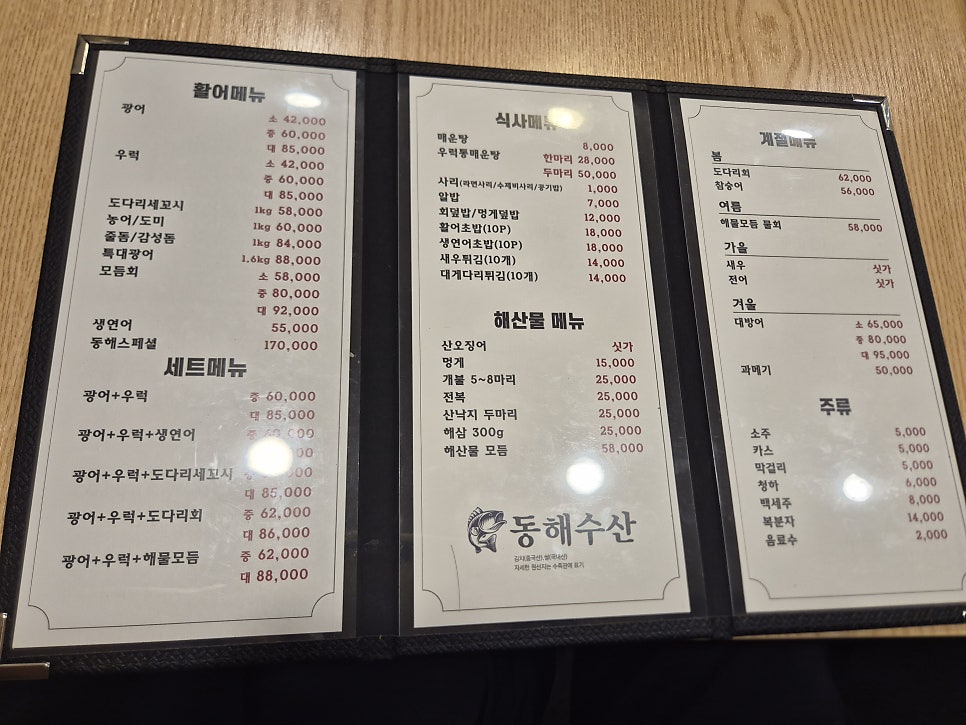 활어메뉴
광어 소 42,000
중 60,000
대 85,000
우럭 소 42,000
중 60,000
대 85,000
도다리세꼬시 1kg 58,000
농어/도미 1kg 60,000
줄돔/감성돔 1kg 84,000
특대광어 1.6kg 88,000
모듬회 소 58,000
중 80,000
대 92,000
생연어 55,000
동해스페셜 170,000
세트메뉴
광어+우럭 중 60,000
대 85,000
광어+우럭+생연어
광어+우럭+도다리세꼬시
대 85,000
광어+우럭+도다리회 중 62,000
대 86,000
광어+우럭+해물모듬 중 62,000
대 88,000
식사메뉴
매운탕 8,000
우럭통매운탕 한마리 28,000
두마리 50,000
사리(라면사리/수제비사리/공기밥) 1,000
알밥 7,000
회덮밥/멍게덮밥 12,000
활어초밥(10P) 18,000
생연어초밥(10P) 18,000
새우튀김(10개) 14,000
대게다리튀김(10개) 14,000
해산물 메뉴
산오징어 싯가
멍게 15,000
개불 5~8마리 25,000
전복 25,000
산낙지 두마리 25,000
해삼 300g 25,000
해산물 모듬 58,000
동해수산
김치(중국산),쌀(국내산)
자세한 원산지는 수족관에 표기
계절메뉴
봄
도다리회 62,000
참숭어 56,000
여름
해물모듬 물회 58,000
가을
새우 싯가
전어 싯가
겨울
대방어 소 65,000
중 80,000
대 95,000
과메기 50,000
주류
소주 5,000
카스 5,000
막걸리 5,000
청하 6,000
백세주 8,000
복분자 14,000
음료수 2,000